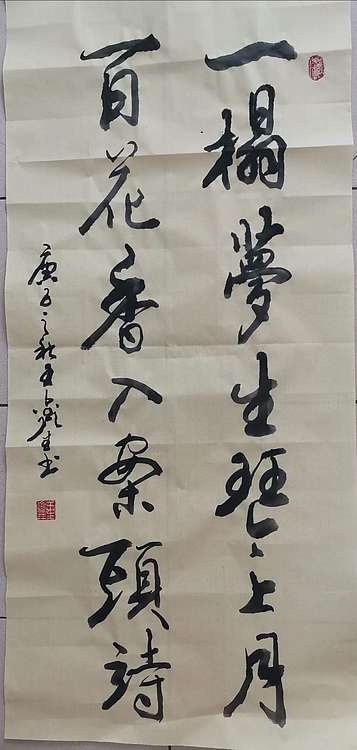 一榻夢生琴上月
百花香入案頭詩
庚子之秋王
生書